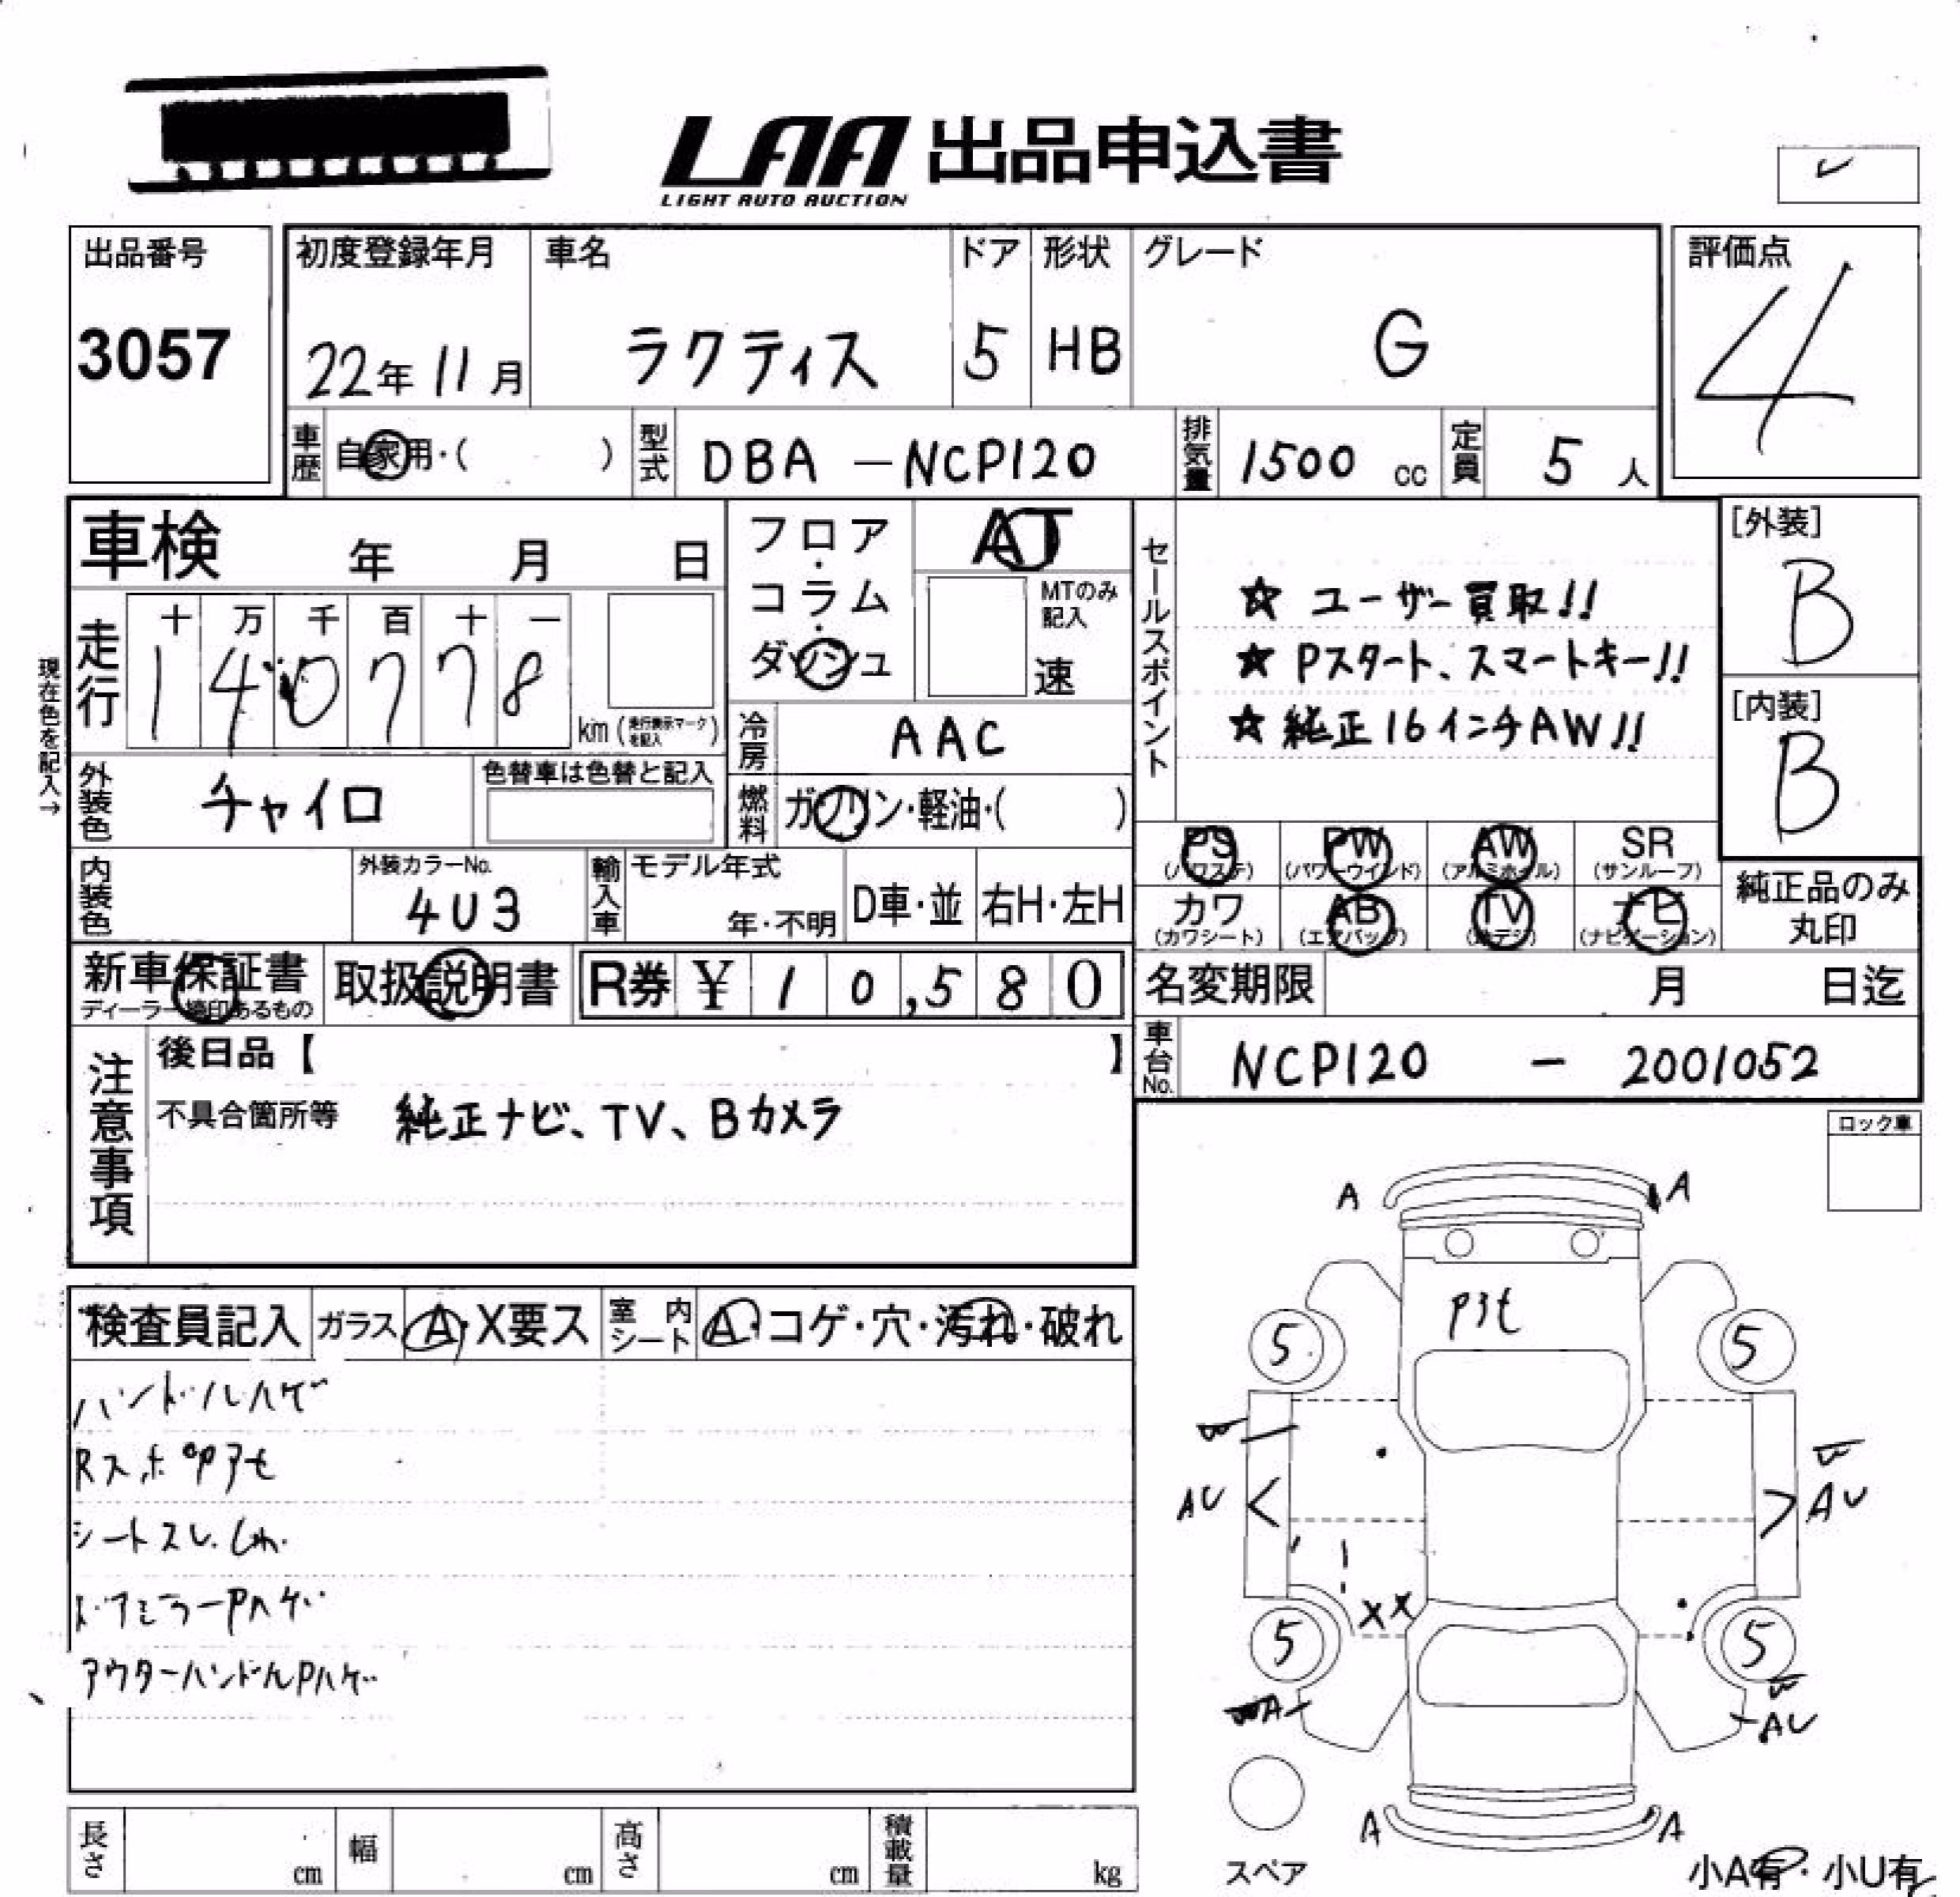 LAA 出品申込書
LIGHT AUTO AUCTION
出品番号
3057
初度登録年月
22年 11月
車名
ラクティス
ドア
5
形状
HB
グレード
G
評価点
4
車歴
自家用・( )
型式
DBA - NCP120
排気量
1500 cc
定員
5 人
車検 年 月 日
フロア・コラム・ダッシュ
AT
MTのみ記入
速
セールスポイント
☆ ユーザー買取!!
☆ Pスタート、スマートキー!!
☆ 純正16インチAW!!
[外装]
B
[内装]
B
現在色を記入→
走行
十 万 千 百 十 一
1 4 0 7 7 8
km (走行表示マークを記入)
冷房
AAC
外装色
チャイロ
色替車は色替と記入
燃料
ガソリン・軽油・( )
PS (パワステ)
PW (パワーウインド)
AW (アルミホイル)
SR (サンルーフ)
カワ (カワシート)
AB (エアバック)
TV (地デジ)
ナビ (ナビゲーション)
純正品のみ丸印
内装色
外装カラーNo.
4U3
輸入車
モデル年式
年・不明
D車・並
右H・左H
新車保証書
ディーラー捺印あるもの
取扱説明書
R券 ¥ 10,580
名変期限 月 日迄
車台No.
NCP120 - 2001052
注意事項
後日品【 】
不具合箇所等 純正ナビ、TV、Bカメラ
ロック車
検査員記入
ガラス A・X要ス
室内シート A・コゲ・穴・汚れ・破れ
ハンドルハゲ
シートスレ.
ドアミラーPハゲ
アウターハンドルPハゲ
A A
5 5
W W
AU AU
XX
5 5
W
A AU
A A
スペア
小A有・小U有
長さ cm
幅 cm
高さ cm
積載量 kg